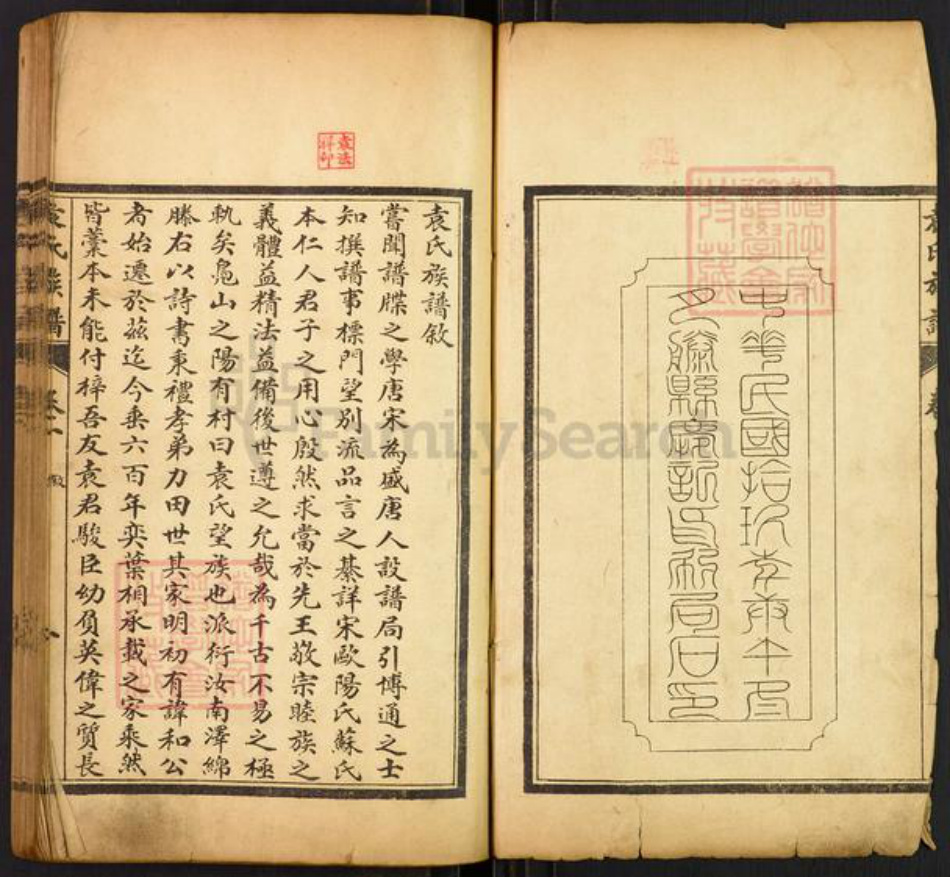 中華民國拾玖年庚午夏
月滕縣
石印
袁氏族譜敘
嘗聞譜牒之學唐宋為盛唐人設譜局引博通之士
知撰譜事標門望別流品言之綦詳宋歐陽氏蘇氏
本仁人君子之用心殷然求當於先王敬宗睦族之
義體益精法益備後世遵之允哉為千古不易之極
軌矣鳧山之陽有村曰袁氏望族也派衍汝南澤綿
滕右以詩書秉禮孝弟力田世其家明初有諱和公
者始遷於茲迄今垂六百年奕葉相承載之家乘然
皆藁本未能付梓吾友袁君駿臣幼負英偉之質長
袁氏族譜
袁氏族譜
袁法
FamilySearch